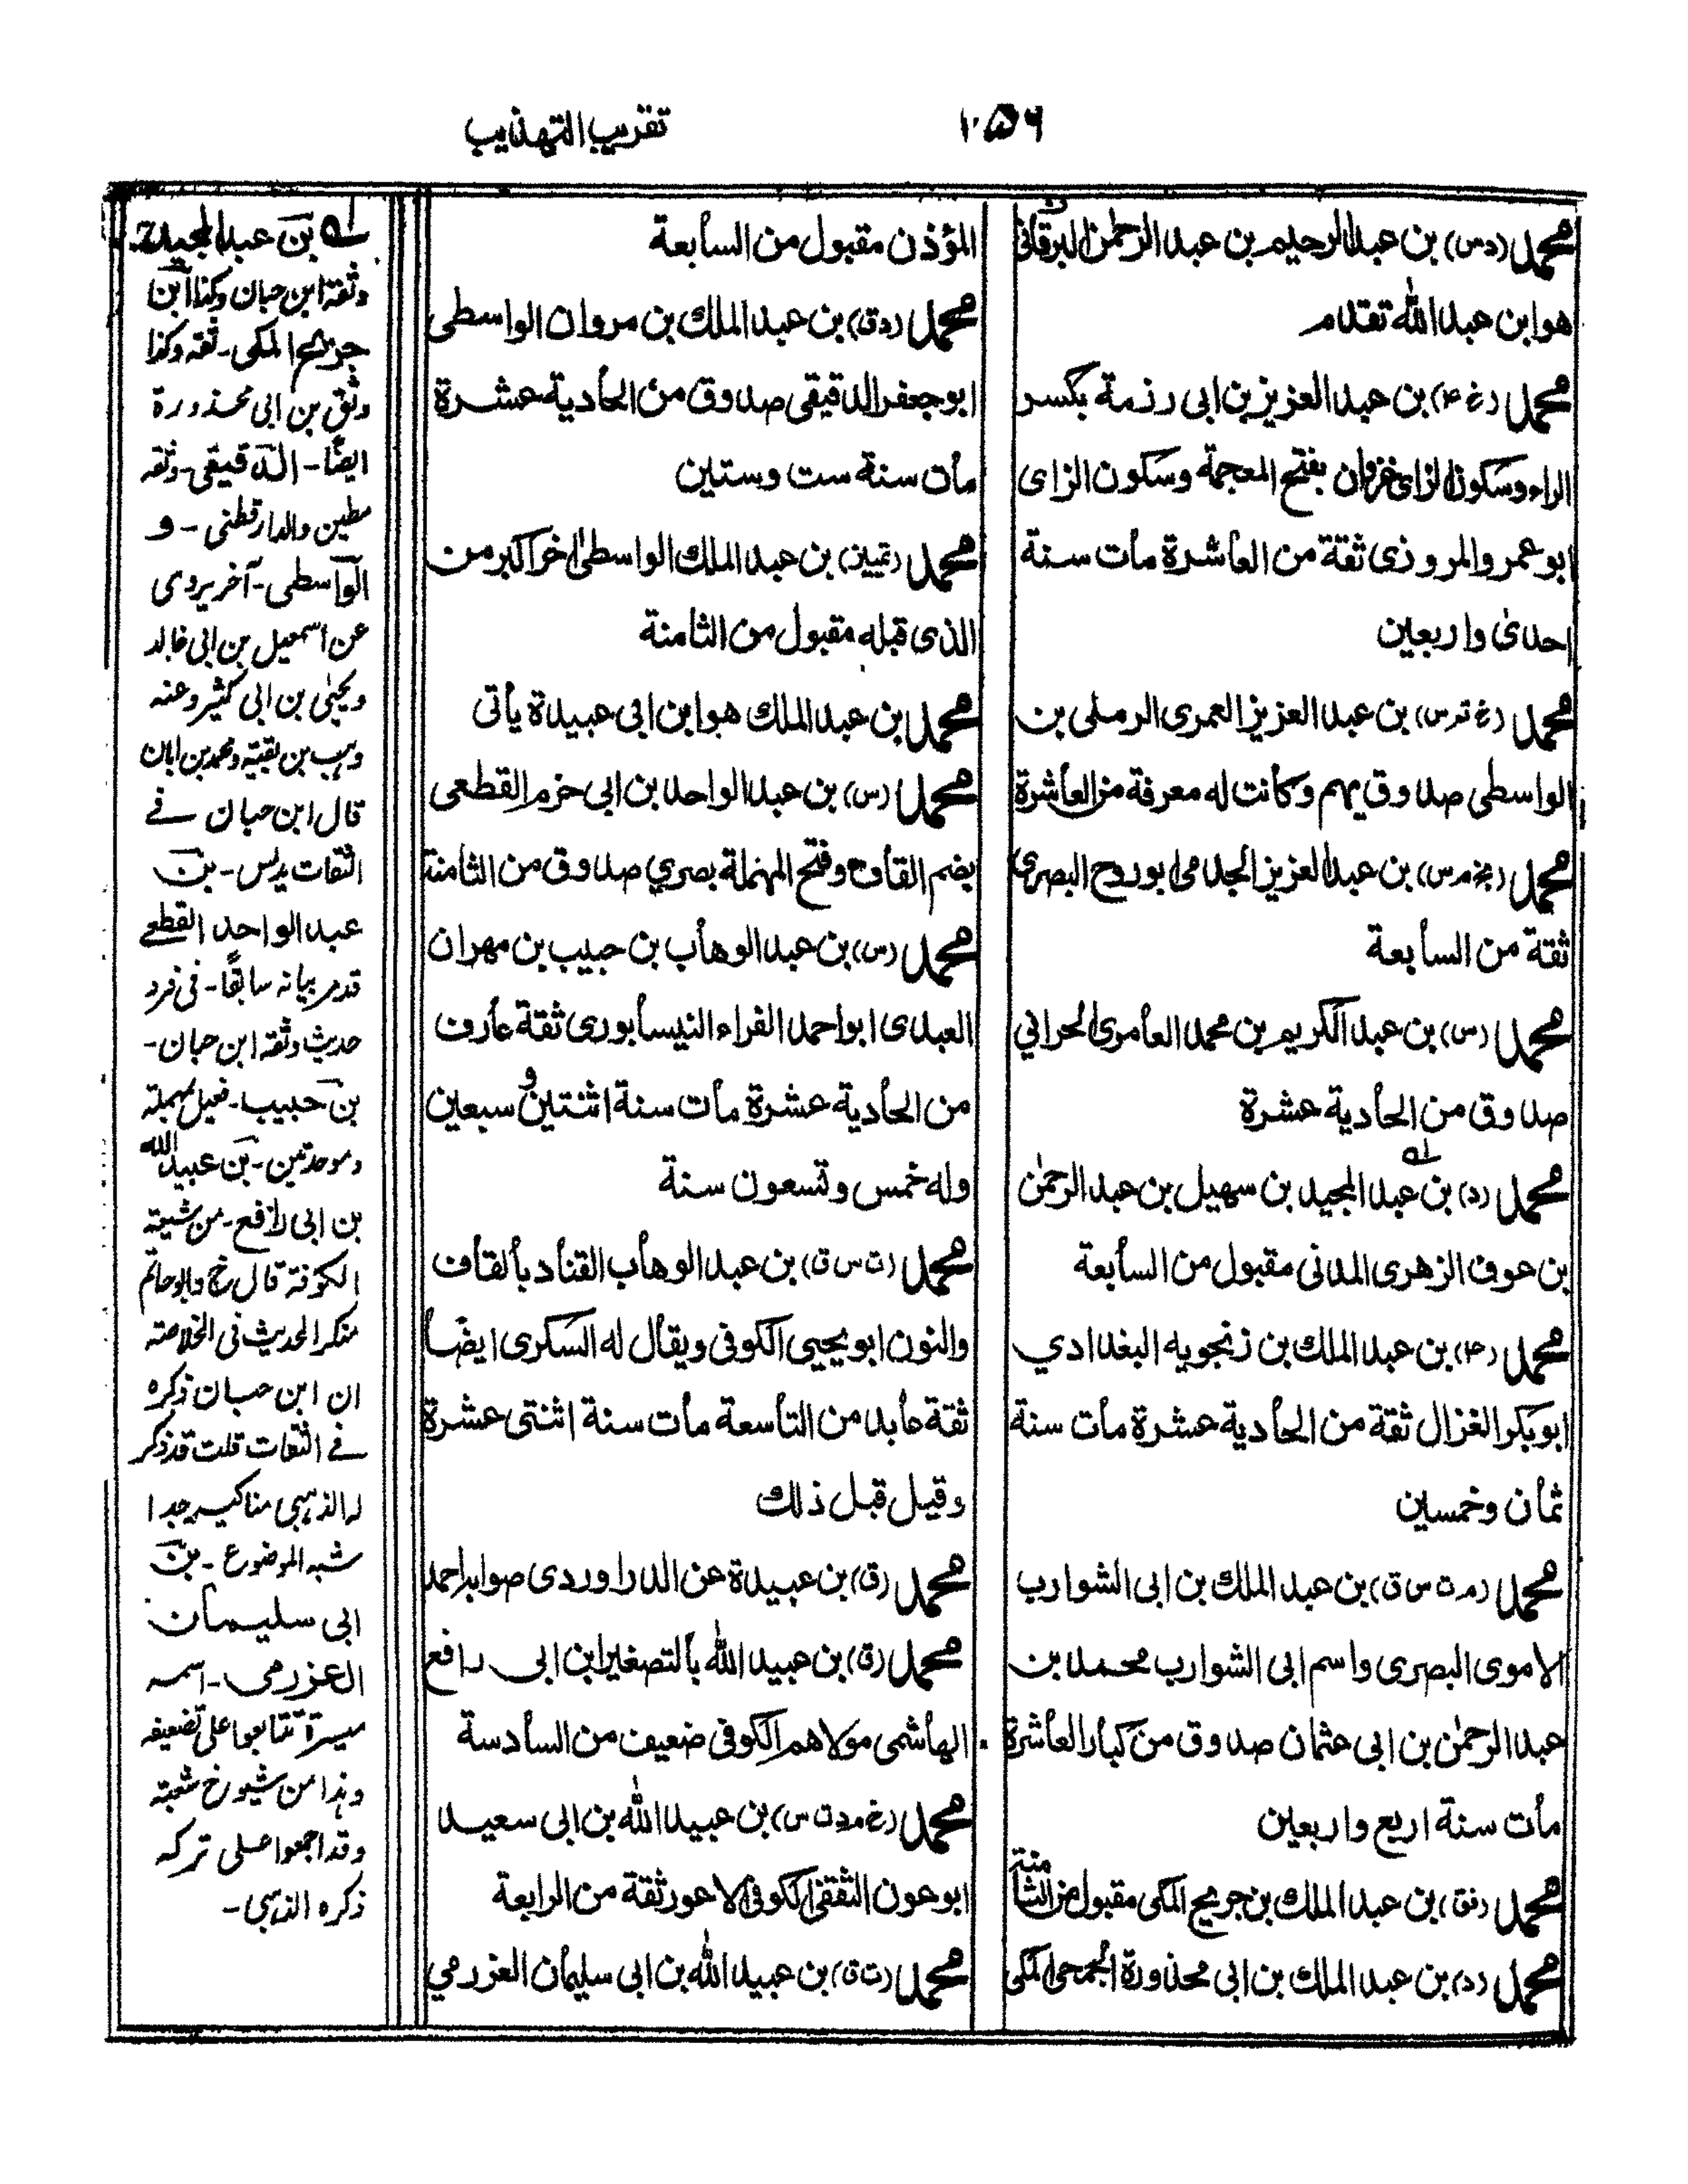 تقريب التهذيب
محمد (دس) بن عبد الرحيم بن عبد الرحمن البرقانى
هو ابن عبد الله تقدم
محمد (خ ۴) بن عبد العزيز بن ابى رزمة بكسر
الراء وسكون الزاى غزوان بفتح المعجمة وسكون الزاى
ابو عمرو المروزى ثقة من العاشرة مات سنة
احدى واربعين
محمد (خ تم س) بن عبد العزيز العمرى الرملى بن
الواسطى صدوق يهم وكانت له معرفة من العاشرة
محمد (بخ م س) بن عبد العزيز الجدامى ابو روح البصرى
ثقة من السابعة
محمد (س) بن عبد الكريم بن محمد العامرى الحرانى
صدوق من الحادية عشرة
محمد (د) بن عبد المجيد بن سهيل بن عبد الرحمن
بن عوف الزهرى المدنى مقبول من السابعة
محمد (۴) بن عبد الملك بن زنجويه البغدادي
ابو بكر الغزال ثقة من الحادية عشرة مات سنة
ثمان وخمسين
محمد (م ت س ق) بن عبد الملك بن ابى الشوارب
الاموى البصرى واسم ابى الشوارب محمد بن
عبد الرحمن بن ابى عثمان صدوق من كبار العاشرة
مات سنة اربع واربعين
محمد (فق) بن عبد الملك بن جريج المكى مقبول من الثامنة
محمد (د) بن عبد الملك بن ابى محذورة الجمحى المكى
المؤذن مقبول من السابعة
محمد (دق) بن عبد الملك بن مروان الواسطى
ابو جعفر الدقيقى صدوق من الحادية عشرة
مات سنة ست وستين
محمد (تمييز) بن عبد الملك الواسطى اخر اكبر من
الذى قبله مقبول من الثامنة
محمد بن عبد الملك هو ابن ابى عبيدة يأتى
محمد (س) بن عبد الواحد بن ابى حزم القطعى
بضم القاف وفتح المهملة بصري صدوق من الثامنة
محمد (س) بن عبد الوهاب بن حبيب بن مهران
العبدى ابو احمد الفراء النيسابورى ثقة عارف
من الحادية عشرة مات سنة اثنتين و سبعين
وله خمس وتسعون سنة
محمد (ت س ق) بن عبد الوهاب القناد بالقاف
والنون ابو يحيى الكوفى ويقال له السكرى ايضا
ثقة عابد من التاسعة مات سنة اثنتى عشرة
وقيل قبل ذلك
محمد (ق) بن عبيدة عن الدراوردى صوابه احمد
محمد (ق) بن عبيد الله بالتصغير ابن ابى رافع
الهاشمى مولاهم الكوفى ضعيف من السادسة
محمد (خ م د ت س) بن عبيد الله بن ابى سعيد
ابو عون الثقفى الكوفى الاعور ثقة من الرابعة
محمد (ت ق) بن عبيد الله بن ابى سليمان العزرمي
له بن عبد المجيد۔
وثقه ابن حبان وكذا ابن
جريج المكى۔ ثقه وكذا
وثق بن ابى محذورة
ايضًا۔ الدقيقى۔ وثقه
مطين والدارقطنى۔ و
الواسطى۔ آخر يروى
عن اسمعيل بن ابى خالد
ويحيى بن ابى كثير وعنه
وهب بن بقية ومحمد بن ابان
قال ابن حبان فے
الثقات يدلس۔ بن
عبد الواحد القطعے
قدم بيانه سابقًا۔ فى فرد
حديث وثقه ابن حبان۔
بن حبيب۔ فعيل بمهملة
وموحدتين۔ بن عبيد الله
بن ابى رافع۔ من شيعة
الكوفة قال خ وابو حاتم
منكر الحديث فى الخلاصه
ان ابن حبان ذكره
فے الثقات قلت قد ذكر
له الذهبى مناكير جدا
شبه الموضوع۔ بن
ابى سليمان
العزرمى۔ اسمه
ميسرة تتابعوا على تضعيفه
وهذا من شيوخ شعبة
وقد اجمعوا على تركه
ذكره الذهبى۔